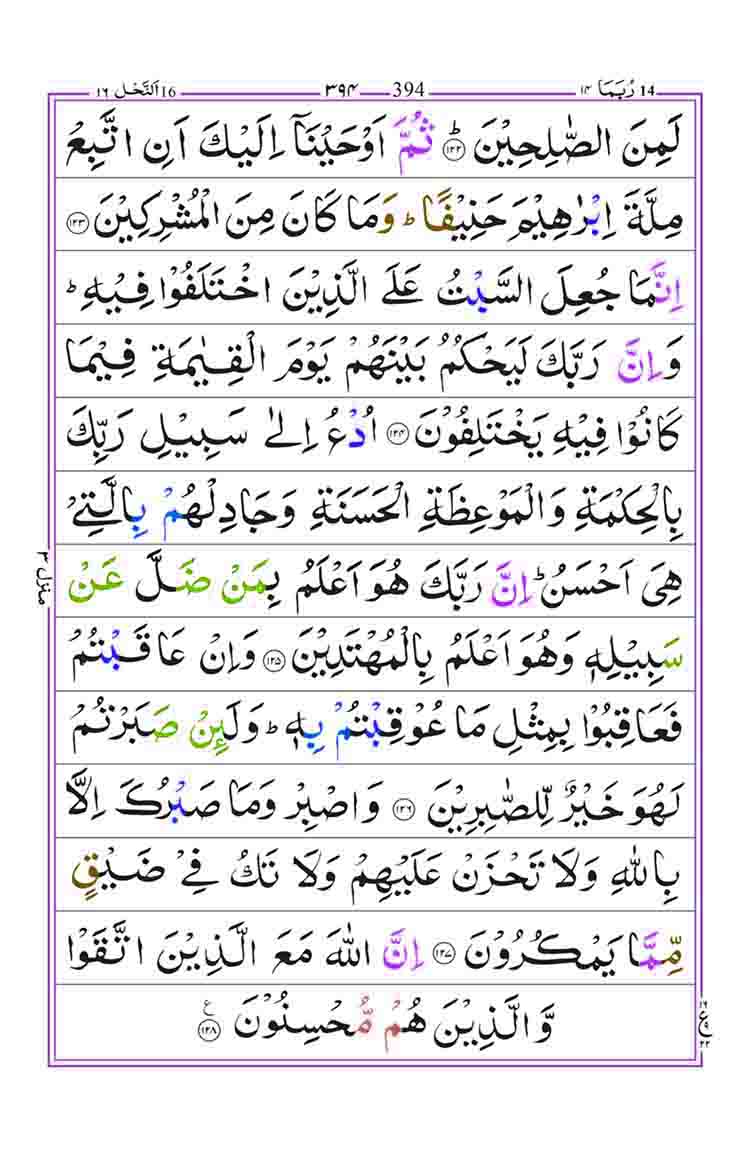 رُبَمَا ۱۴ 14 394 ۳۹۴ اَلنَّحْل ۱۶ 16
لَمِنَ الصّٰلِحِيْنَ ؕ‏ ﴿۱۲۲﴾ ثُمَّ اَوْحَيْنَاۤ اِلَيْكَ اَنِ اتَّبِعْ
مِلَّةَ اِبْرٰهِيْمَ حَنِيْفًا‌ ؕ وَمَا كَانَ مِنَ الْمُشْرِكِيْنَ ﴿۱۲۳﴾
اِنَّمَا جُعِلَ السَّبْتُ عَلَى الَّذِيْنَ اخْتَلَفُوْا فِيْهِ‌ ؕ
وَاِنَّ رَبَّكَ لَيَحْكُمُ بَيْنَهُمْ يَوْمَ الْقِيٰمَةِ فِيْمَا
كَانُوْا فِيْهِ يَخْتَلِفُوْنَ ﴿۱۲۴﴾ اُدْعُ اِلٰى سَبِيْلِ رَبِّكَ
بِالْحِكْمَةِ وَالْمَوْعِظَةِ الْحَسَنَةِ وَجَادِلْهُمْ بِالَّتِىْ
هِىَ اَحْسَنُ‌ ؕ اِنَّ رَبَّكَ هُوَ اَعْلَمُ بِمَنْ ضَلَّ عَنْ
سَبِيْلِهٖ وَهُوَ اَعْلَمُ بِالْمُهْتَدِيْنَ ﴿۱۲۵﴾ وَاِنْ عَاقَبْتُمْ
فَعَاقِبُوْا بِمِثْلِ مَا عُوْقِبْتُمْ بِهٖ‌ ؕ وَلَئِنْ صَبَرْتُمْ
لَهُوَ خَيْرٌ لِّلصّٰبِرِيْنَ ﴿۱۲۶﴾ وَاصْبِرْ وَمَا صَبْرُكَ اِلَّا
بِاللّٰهِ وَلَا تَحْزَنْ عَلَيْهِمْ وَلَا تَكُ فِىْ ضَيْقٍ
مِّمَّا يَمْكُرُوْنَ ﴿۱۲۷﴾ اِنَّ اللّٰهَ مَعَ الَّذِيْنَ اتَّقَوْا
وَّالَّذِيْنَ هُمْ مُّحْسِنُوْنَ ﴿۱۲۸﴾ ع
منزل ۳
۱۶
ع ۹
۲۲